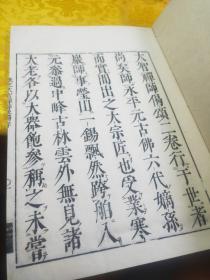 大智禪師偈頌一卷行于世者
尚矣師永平元古佛六代嫡孫
而實間出之大宗匠也受業寒
巖師事瑩山一錫飄然踏舶入
元遇中峰古林雲外無見諸
大老各以大器飽參稱之未嘗